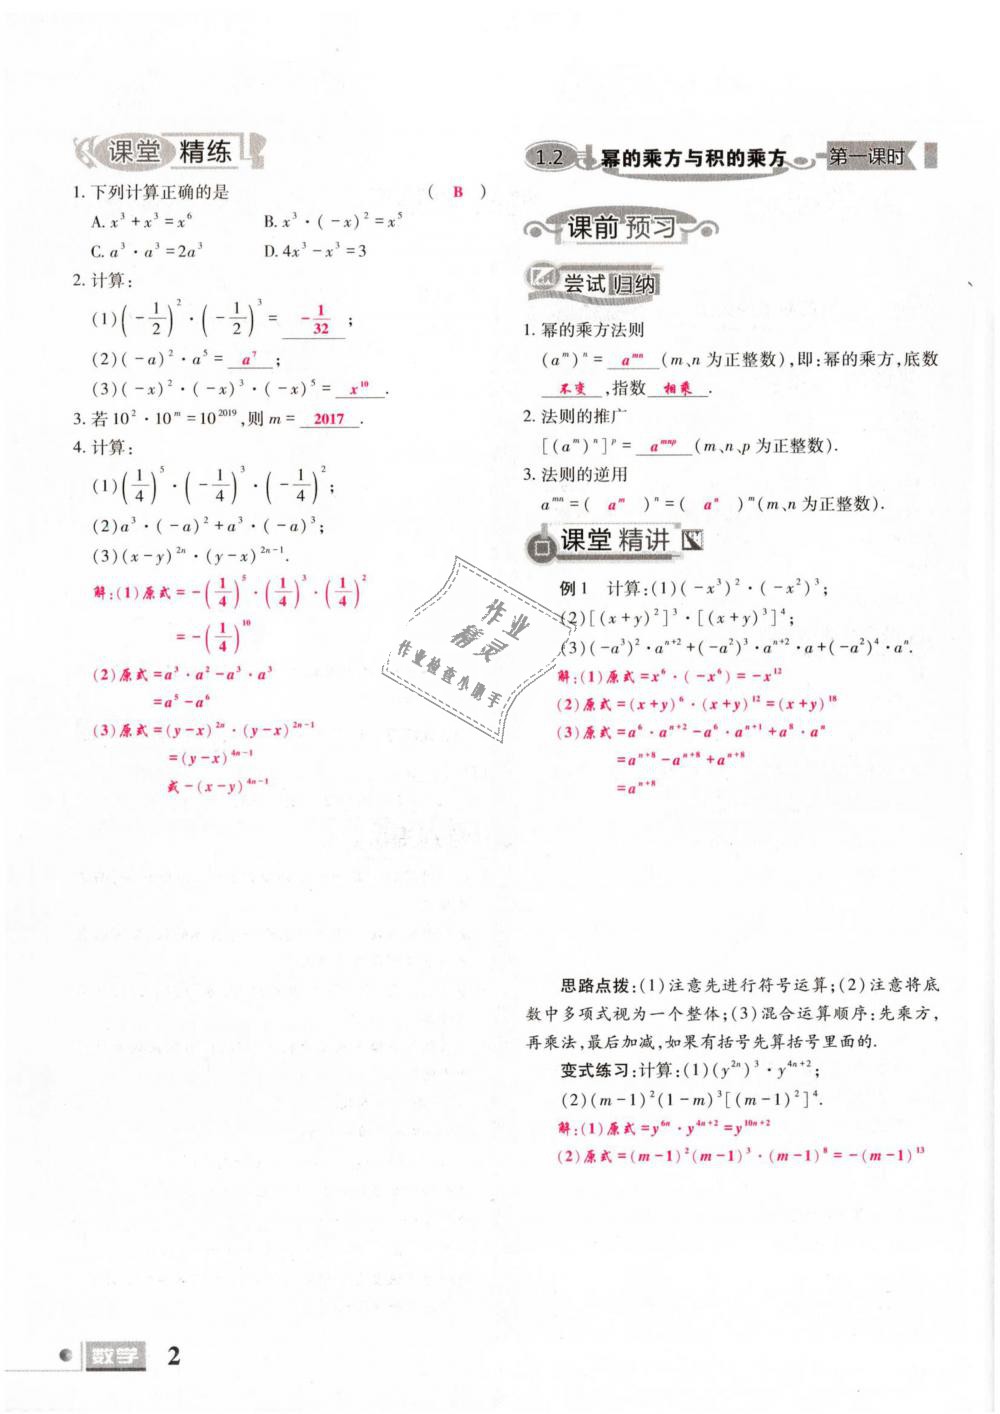 课堂 精练
1. 下列计算正确的是 ( B )
A. x³+x³=x⁶ B. x³·(-x)²=x⁵
C. a³·a³=2a³ D. 4x³-x³=3
2. 计算:
(1)(-1/2)²·(-1/2)³= -1/32 ;
(2)(-a)²·a⁵= a⁷ ;
(3)(-x)²·(-x)³·(-x)⁵= x¹⁰ .
3. 若10²·10ᵐ=10²⁰¹⁹,则m= 2017 .
4. 计算:
(1)(1/4)⁵·(-1/4)³·(-1/4)²;
(2)a³·(-a)²+a³·(-a)³;
(3)(x-y)²ⁿ·(y-x)²ⁿ⁻¹.
解:(1)原式=-(1/4)⁵·(1/4)³·(1/4)²
=-(1/4)¹⁰
(2)原式=a³·a²-a³·a³
=a⁵-a⁶
(3)原式=(y-x)²ⁿ·(y-x)²ⁿ⁻¹
=(y-x)⁴ⁿ⁻¹
或-(x-y)⁴ⁿ⁻¹
1.2 幂的乘方与积的乘方 第一课时
课前 预习
尝试 归纳
1. 幂的乘方法则
(aᵐ)ⁿ= aᵐⁿ (m、n为正整数),即:幂的乘方,底数
不变 ,指数 相乘 .
2. 法则的推广
[(aᵐ)ⁿ]ᵖ= aᵐⁿᵖ (m、n、p为正整数).
3. 法则的逆用
aᵐⁿ=( aᵐ )ⁿ=( aⁿ )ᵐ(m、n为正整数).
课堂 精讲
例1 计算:(1)(-x³)²·(-x²)³;
(2)[(x+y)²]³·[(x+y)³]⁴;
(3)(-a³)²·aⁿ⁺²+(-a²)³·aⁿ⁺²·a+(-a²)⁴·aⁿ.
解:(1)原式=x⁶·(-x⁶)=-x¹²
(2)原式=(x+y)⁶·(x+y)¹²=(x+y)¹⁸
(3)原式=a⁶·aⁿ⁺²-a⁶·aⁿ⁺¹+a⁸·aⁿ
=aⁿ⁺⁸-aⁿ⁺⁸+aⁿ⁺⁸
=aⁿ⁺⁸
思路点拨:(1)注意先进行符号运算;(2)注意将底
数中多项式视为一个整体;(3)混合运算顺序:先乘方,
再乘法,最后加减,如果有括号先算括号里面的.
变式练习:计算:(1)(y²ⁿ)³·y⁴ⁿ⁺²;
(2)(m-1)²(1-m)³[(m-1)²]⁴.
解:(1)原式=y⁶ⁿ·y⁴ⁿ⁺²=y¹⁰ⁿ⁺²
(2)原式=(m-1)²(m-1)³·(m-1)⁸=-(m-1)¹³
作业
精灵
作业检查小助手
数学 2